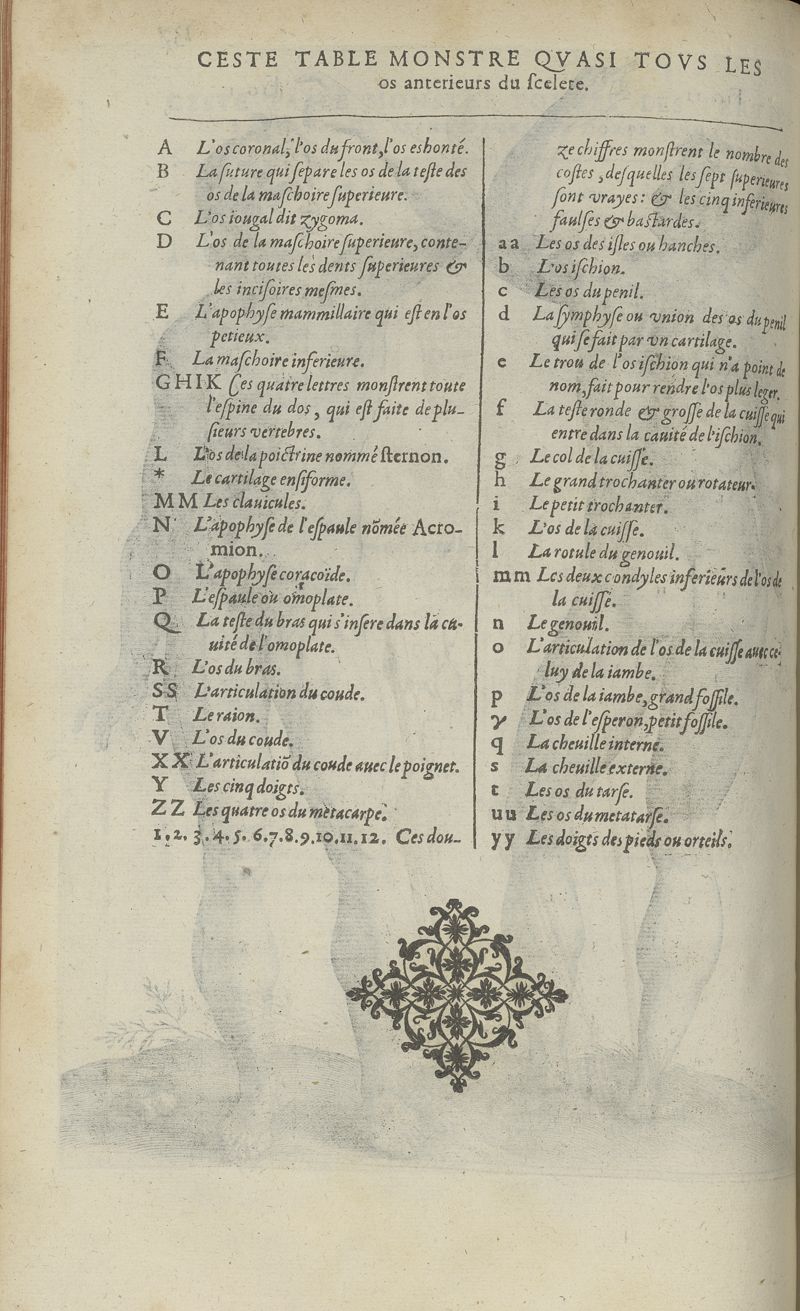 CESTE TABLE MONSTRE QVASI TOVS LES
os anterieurs du ſcelete.
A L'os coronal, l'os du front, l'os eshonté.
B La ſuture qui ſepare les os de la teſte des
os de la maſchoire ſuperieure.
C L'os iougal dit zygoma.
D L'os de la maſchoire ſuperieure, conte-
nant toutes les dents ſuperieures &
les inciſoires meſmes.
E L'apophyſe mammillaire qui eſt en l'os
petieux.
F La maſchoire inferieure.
G H I K Ces quatre lettres monſtrent toute
l'eſpine du dos, qui eſt faite de plu-
ſieurs vertebres.
L L'os de la poictrine nommé ſternon.
* Le cartilage enſiforme.
M M Les clauicules.
N L'apophyſe de l'eſpaule nõmée Acro-
mion.
O L'apophyſe coracoïde.
P L'eſpaule ou omoplate.
Q La teſte du bras qui s'inſere dans la ca-
uité de l'omoplate.
R L'os du bras.
S S L'articulation du coude.
T Le raion.
V L'os du coude.
X X L'articulatiõ du coude auec le poignet.
Y Les cinq doigts.
Z Z Les quatre os du metacarpe.
1. 2. 3. 4. 5. 6. 7. 8. 9. 10. 11. 12. Ces dou-
ze chiffres monſtrent le nombre des
coſtes, deſquelles les ſept ſuperieures
ſont vrayes: & les cinq inferieures
faulſes & baſtardes.
a a Les os des iſles ou hanches.
b L'os iſchion.
c Les os du penil.
d La ſymphyſe ou vnion des os du penil
qui ſe fait par vn cartilage.
e Le trou de l'os iſchion qui n'a point de
nom, fait pour rendre l'os plus leger.
f La teſte ronde & groſſe de la cuiſſe qui
entre dans la cauité de l'iſchion.
g Le col de la cuiſſe.
h Le grand trochanter ou rotateur.
i Le petit trochanter.
k L'os de la cuiſſe.
l La rotule du genouil.
m m Les deux condyles inferieurs de l'os de
la cuiſſe.
n Le genouil.
o L'articulation de l'os de la cuiſſe auec ce-
luy de la iambe.
p L'os de la iambe, grand foſſile.
γ L'os de l'eſperon, petit foſſile.
q La cheuille interne.
s La cheuille externe.
t Les os du tarſe.
u u Les os du metatarſe.
y y Les doigts des pieds ou orteils.